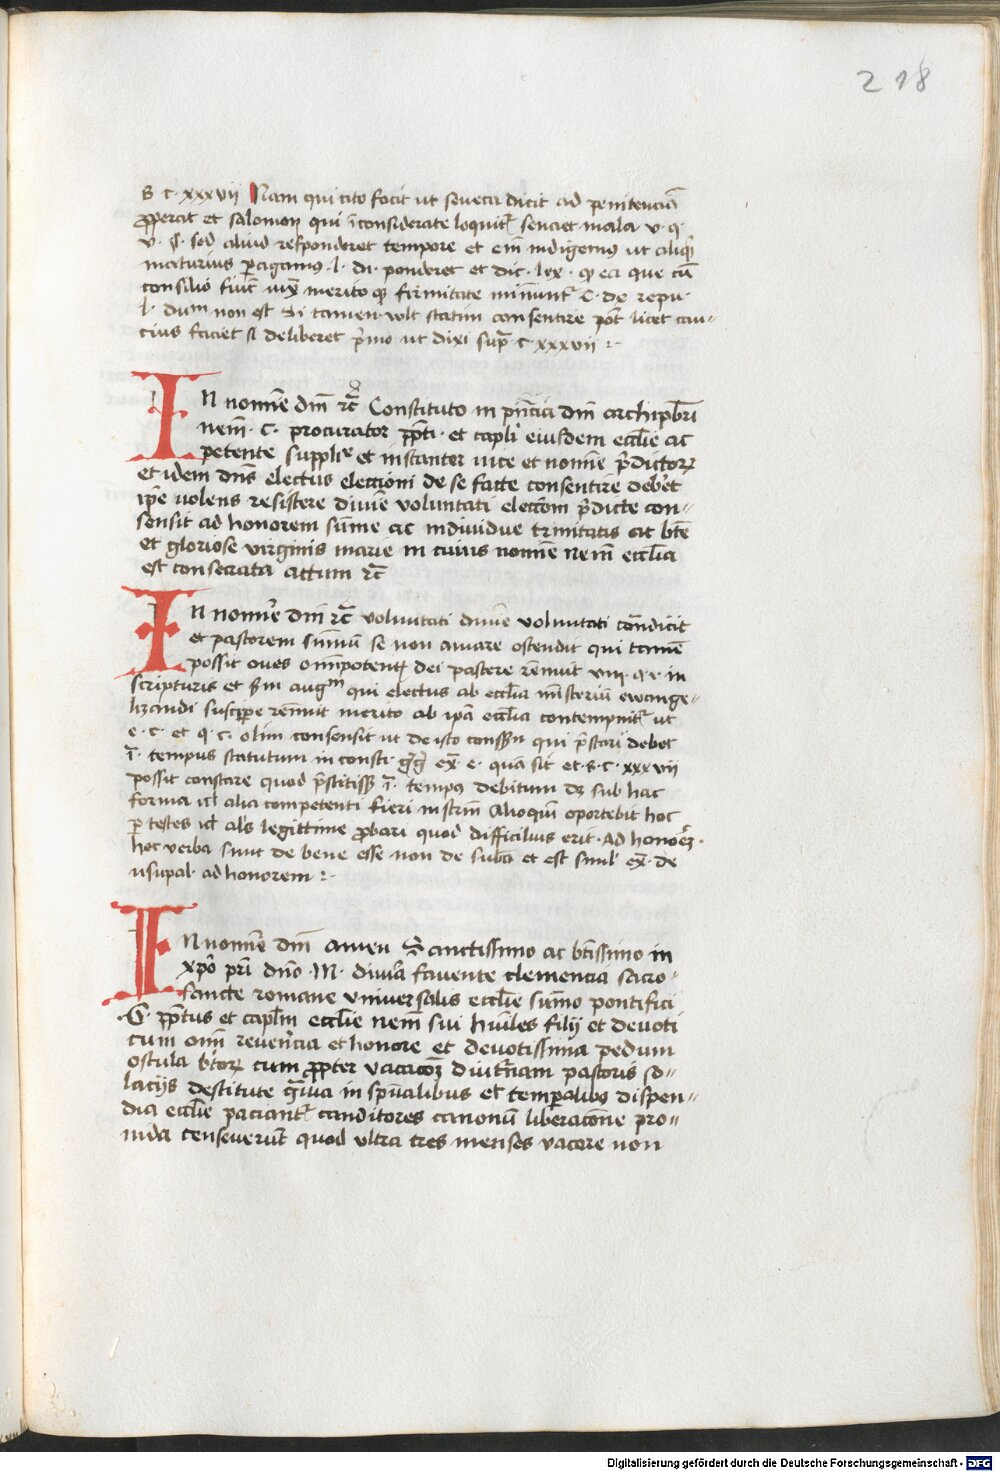 218
s c xxxvii Nam qui cito facit ut seneca dicit ad penitenciā
ꝓperat et salomon qui īconsiderate loquitᷣ senciet mala v· q·
v· C· sed aliud respondere tempore et em̄ indigemus ut aliqͥd
maturius ꝑagamus ponderet et dic· lex · ꝙ ea que cū
consilio fiūt merito ꝙ firmitate C· de repu·
l· dum non est Si tamen vult statim consentire pōt licet cau⸗
cius faciet si deliberet p̄mo ut dixi supͣ c xxxvii
IN nomīe dnī rc̄ Constituto in pn̄cia dnī archipb̄ri
nem̄· C· procurator ppti· et capli eiusdem eccl̄ie ac
petente supplir et instanter vice et nomīe p̄dictorꝝ
et idem dn̄s electus eleccioni de se facte consentire deb̄et
ip̄e nolens resistere diuīe voluntati elecc̄om p̄dicte con⸗
sensit ad honorem sūme ac indiuidue trinitatis ac bt̄e
et gloriose virginis marie in cuius nomīe nem̄ eccl̄ia
est consecrata actum rc̄
IN nomīe dnī rc̄ voluntati diuīe voluntati cōndicit
et pastorem sūmū se non amare ostendit qui tamē
possit oues om̄ipotentꝭ dei pascere renuit viii· q· v· in
scripturis et sm̄ augm qui electus ab eccl̄ia mīsteriū ewange⸗
lizandi suscipe renuit merito ab ip̄a eccl̄ia contempnitᷣ ut
e· c· et q· c· olim consensit ut de isto qui p̄stari debet
ī· tempus statutum in consti· gg̅ ex̄· e· quā sit et· s· c· xxxvii
possit constare quod p̄stitiss; ī· tempus debitum dꝫ sub hac
forma ul̄ alia competenti fieri instrm̄ Alioquī oportebit hoc
ꝑ testes ul̄ al̄s legittime ꝓbari quod difficilius erit· Ad honorē·
hec verba sunt de bene esse non de sub̄a et est simil ex̄· de
usupal· ad honorem
IN nomīe dnī amen Sanctissimo ac bt̄issimo in
xp̄o pr̄i dn̄o · M· diuīa fauente clemencia sacro⸗
sancte romane vniuersalis eccl̄ie sūmo pontifici
·G· pp̄tus et capl̄m eccl̄ie nem̄ sui hūiles filij et deuoti
cum om̄i reuerīcia et honore et deuotissima pedum
oscula bt̄orꝝ cum ꝓpter vacacoꝫ diutr̄nam pastoris so⸗
lacijs destitute gͣuia in spūalibus et temporalibꝫ dispen⸗
dia eccl̄ie paciantᷣ conditores canonū liberacōne pro⸗
uida censeuerūt quod vltra tres menses vacare non
Digitalisierung gefördert durch die Deutsche Forschungsgemeinschaft - DFG